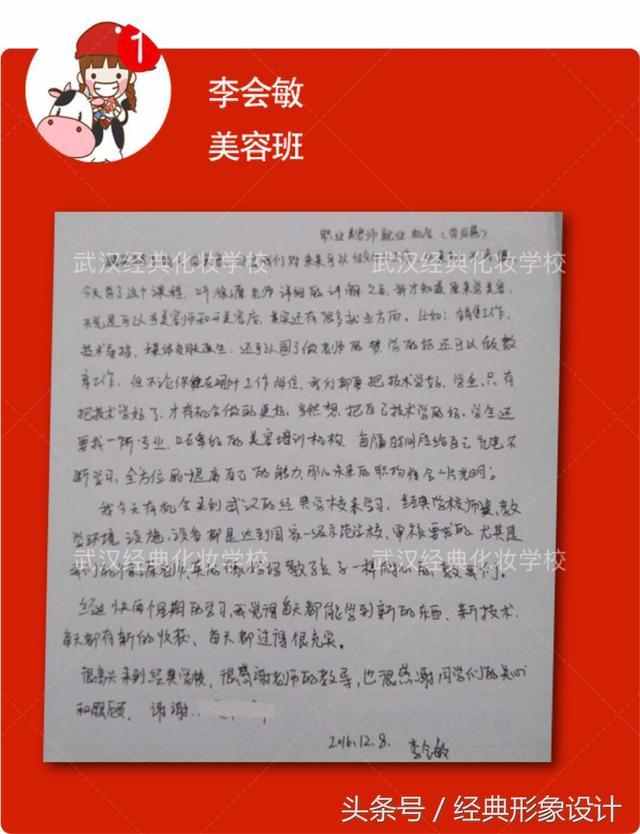 1
李会敏
美容班
职业美容师就业
武汉经典化妆学校
武汉经典化妆学校
今天有了这个课程，听徐源老师详细的讲解之后，我才知道原来学美容，
不光是可以当美容师和开美容店，其实还有很多就业方面。比如：销售工作，
技术
还可以
做老师
还可以做教
育工作，但不论你能在哪个工作岗位，我们都要把技术学好，学业，只有
把技术学好了，才有机会做的更好，当然想，把自己技术学的好，学生还
要找一所专业、口碑好的美容培训机构，每隔时间
给自己充电不
断学习，全方位的提高自己的能力，那么未来的职场将会一片光明；
我今天有机会来到武汉的经典学校来学习，经典学校师资，教
学环境，设施，设备都是达到国家一级示范学校，审
要求的，尤其是
武汉经典化妆学校
武汉经典化妆学校
我们的
老师
像妈妈教孩子一样
教我们。
经过快两个星期的学习，我觉得每天都能学到新的东西、新技术，
每天都有新的收获、每天都过得很充实。
很高兴来到经典学校，很感谢老师的教导，也很感谢同学们的关心
和照顾，谢谢..
2016.12.8. 李会敏
头条号 / 经典形象设计